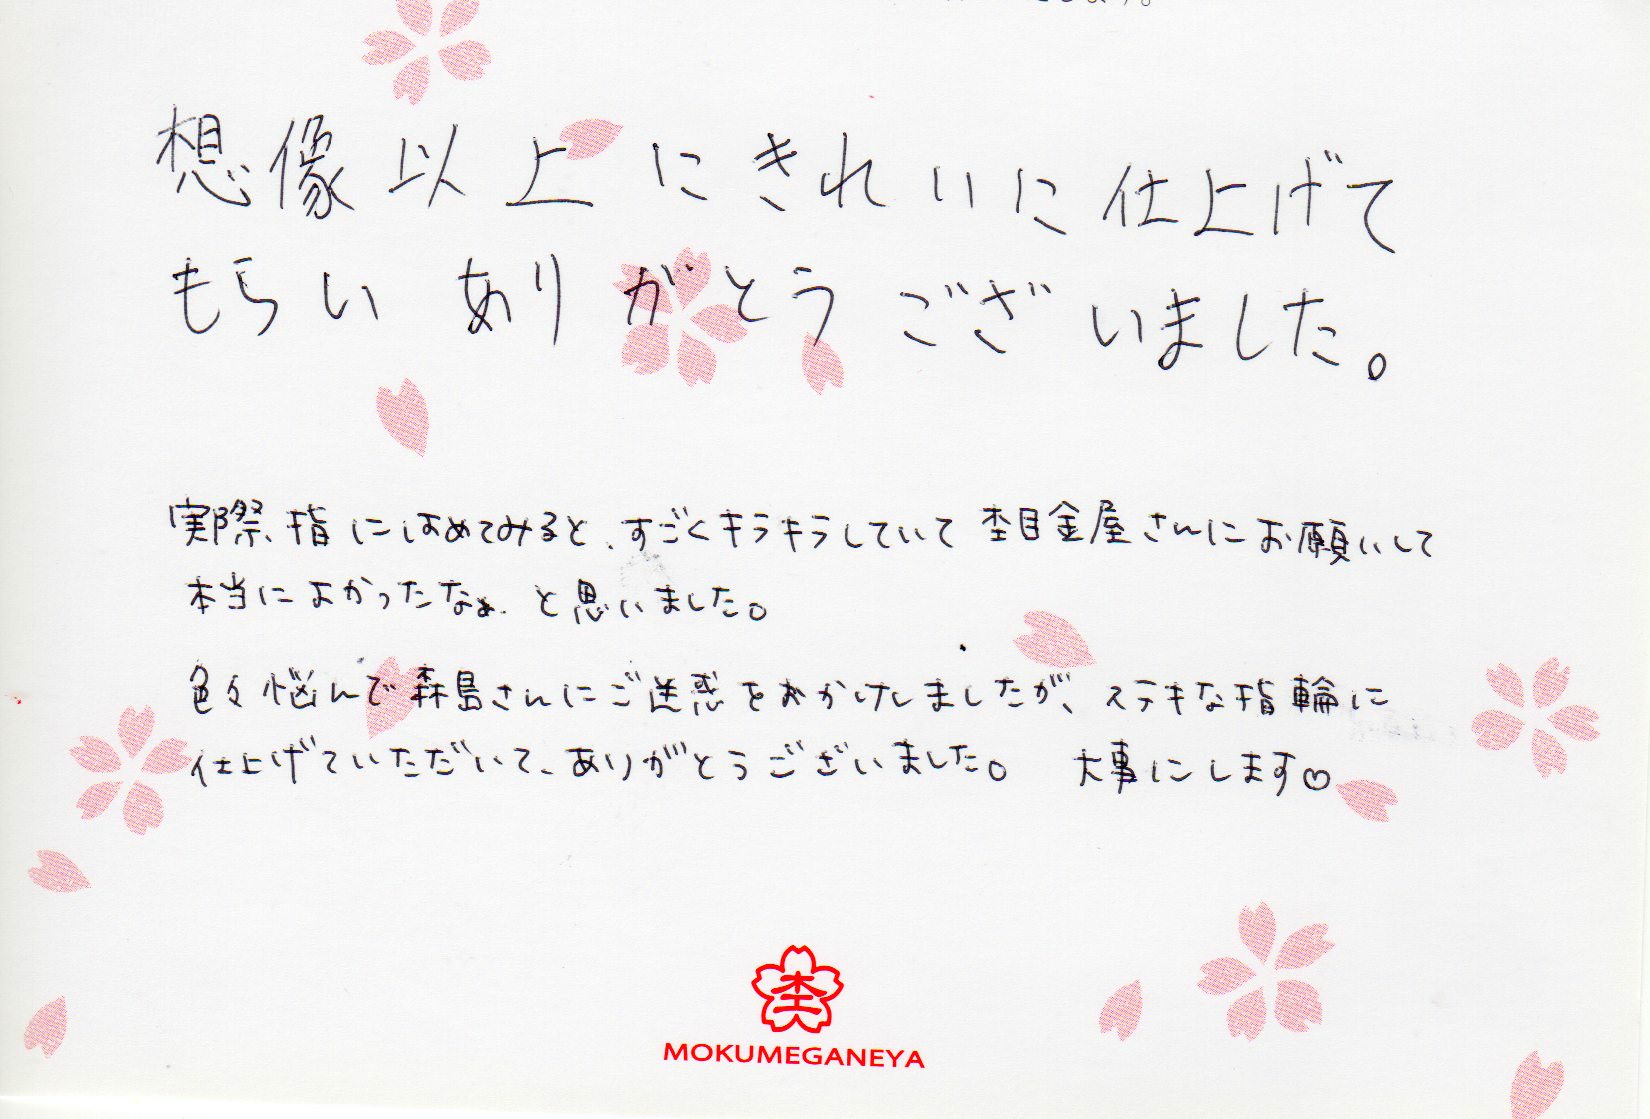 します。
想像以上にきれいに仕上げて
もらい ありがとうございました。
実際、指にはめてみると、すごくキラキラしていて 杢目金屋さんにお願いして
本当によかったなぁ と思いました。
色々悩んで森島さんにご迷惑をおかけしましたが、ステキな指輪に
仕上げていただいて、ありがとうございました。 大事にします♡
杢
MOKUMEGANEYA